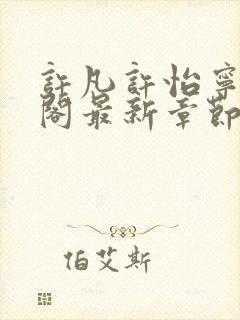 許凡許怡寧
閣最新章節
伯艾斯